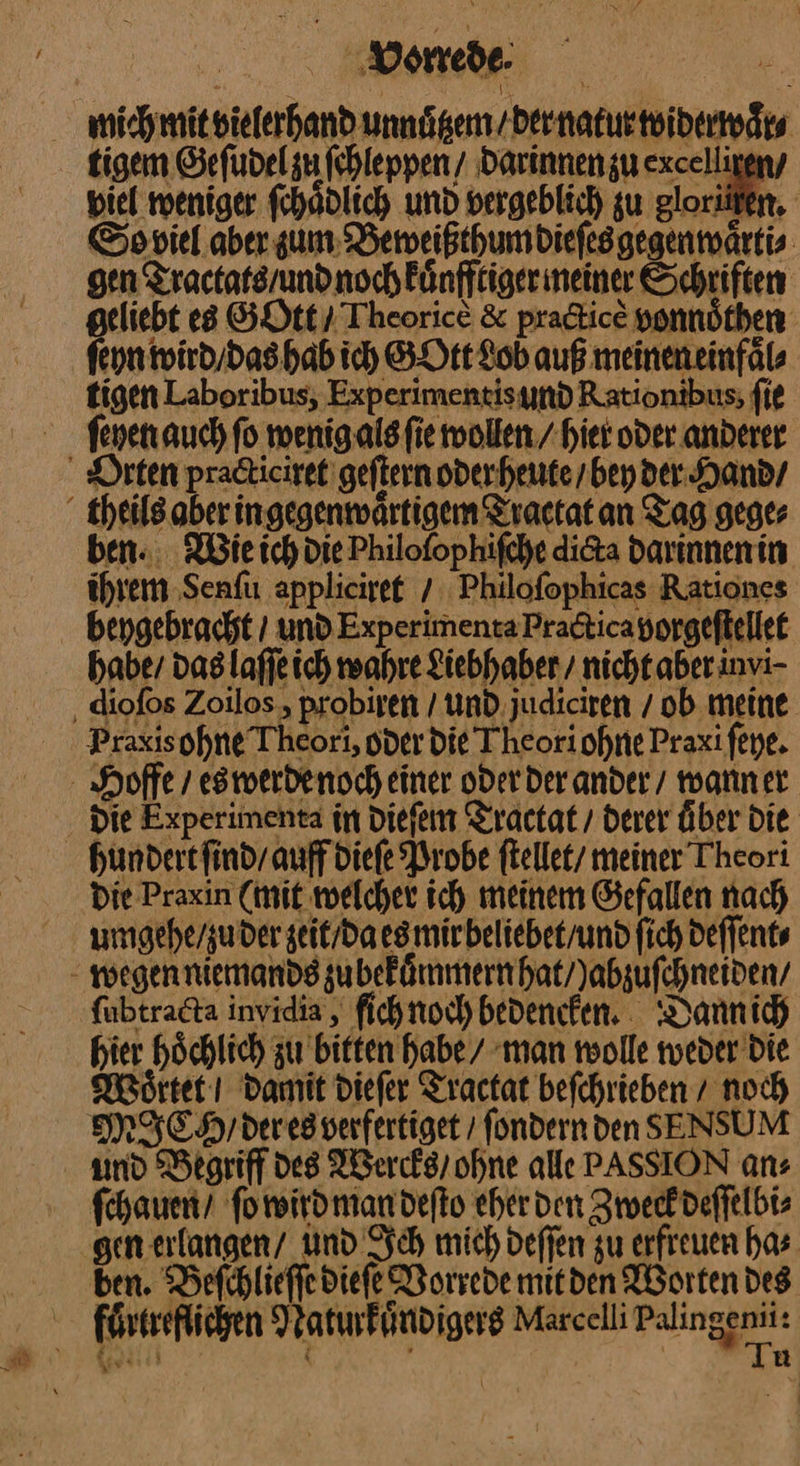 Vorrede.
mich mit vielerhand unnuͤtzem / der natur widerwaͤr⸗
tigem Geſudel zu ſchleppen / darinnen zu excelliren/
viel weniger ſchaͤdlich und vergeblich zu gloriiren.
So viel aber zum Beweißthum dieſes gegenwaͤrti⸗
gen Tractats/und noch kuͤnfftiger meiner Schriften
geliebt es GOtt / Theoricè & practicè vonnoͤthen
ſeyn wird/das hab ich GOtt Lob auß meinen einfaͤl⸗
tigen Laboribus, Experimentis und Rationibus, ſie
ſeyen auch ſo wenig als ſie wollen / hier oder anderer
Orten practiciret geſtern oder heute / bey der Hand/
theils aber in gegenwaͤrtigem Tractat an Tag gege⸗
ben. Wie ich die Philoſophiſche dicta darinnen in
ihrem Senſu appliciret / Philoſophicas Rationes
beygebracht / und Experimenta Practica vorgeſtellet
habe/ das laſſe ich wahre Liebhaber / nicht aber invi-
dioſos Zoilos, probiren / und judiciren / ob meine
Praxis ohne Theori, oder die Theori ohne Praxi ſeye.
Hoffe / es werde noch einer oder der ander / wann er
die Experimenta in dieſem Tractat / derer uͤber die
hundert ſind/ auff dieſe Probe ſtellet/ meiner Theori
die Praxin (mit welcher ich meinem Gefallen nach
umgehe/zu der zeit/da es mir beliebet/und ſich deſſent⸗
wegen niemands zu bekuͤmmern hat/) abzuſchneiden/
ſubtracta invidia, ſich noch bedencken. Dann ich
hier hoͤchlich zu bitten habe / man wolle weder die
Woͤrter / damit dieſer Tractat beſchrieben / noch
MICH/ der es verfertiget / ſondern den SENSUM
und Begriff des Wercks/ ohne alle PASSION an⸗
ſchauen/ ſo wird man deſto eher den Zweck deſſelbi⸗
gen erlangen/ und Ich mich deſſen zu erfreuen ha⸗
ben. Beſchlieſſe dieſe Vorrede mit den Worten des
fuͤrtreflichen Naturkuͤndigers Marcelli Palingenii:
Tu